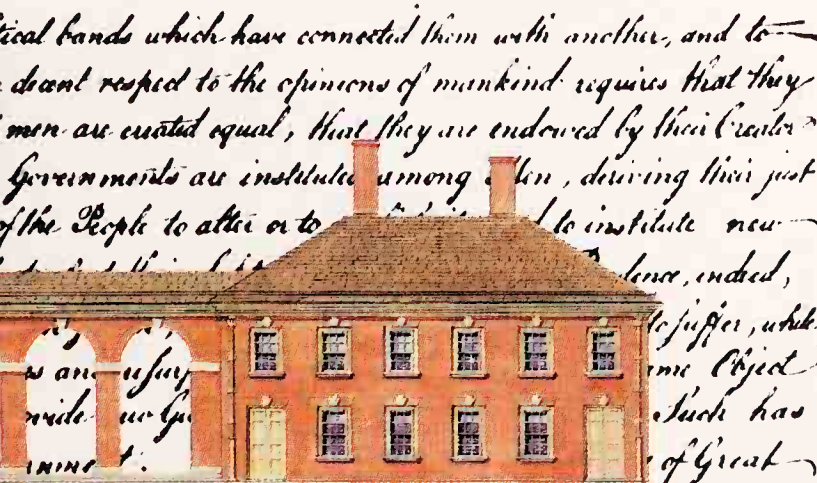 tical bands which have connected them with another, and to
decent respect to the opinions of mankind requires that they
men are created equal, that they are endowed by their Creator
Governments are instituted among Men, deriving their just
of the People to alter or to to institute new
dence, indeed,
to suffer, while
me Object
vide Such has
of Great